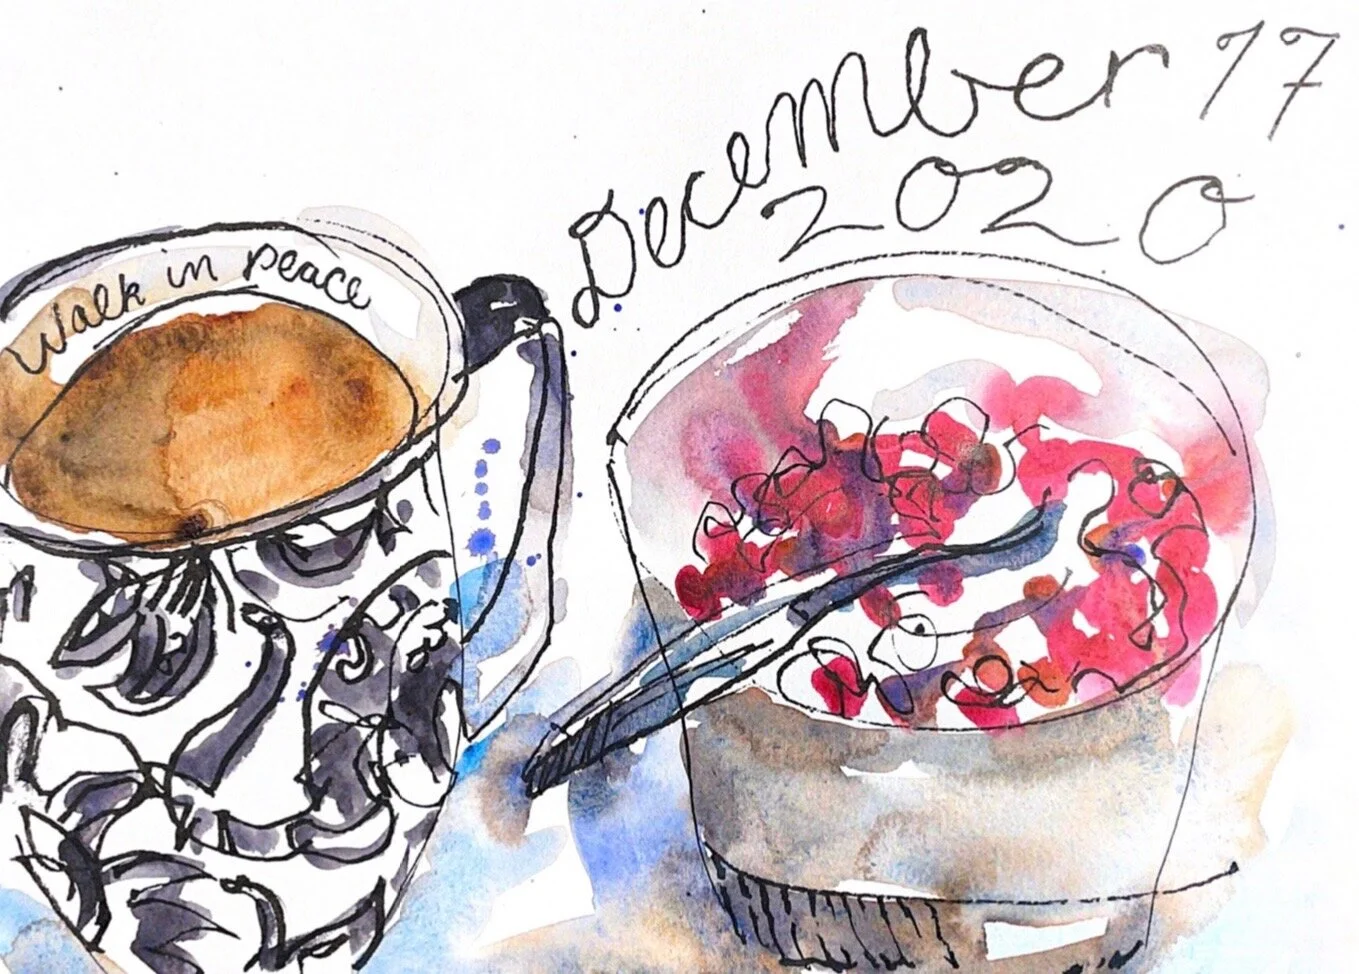 December 17
2020
Walk in peace